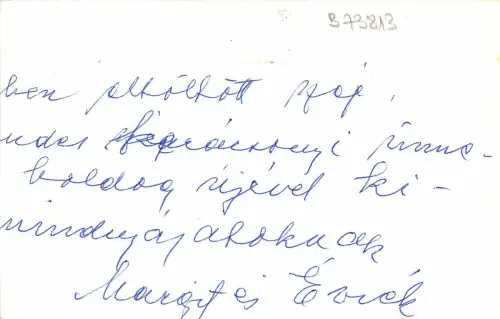 B73813
ben eltöltött szép,
ndes karácsonyi ünne-
boldog újévet ki-
mindnyájatoknak
Margit és Éviék